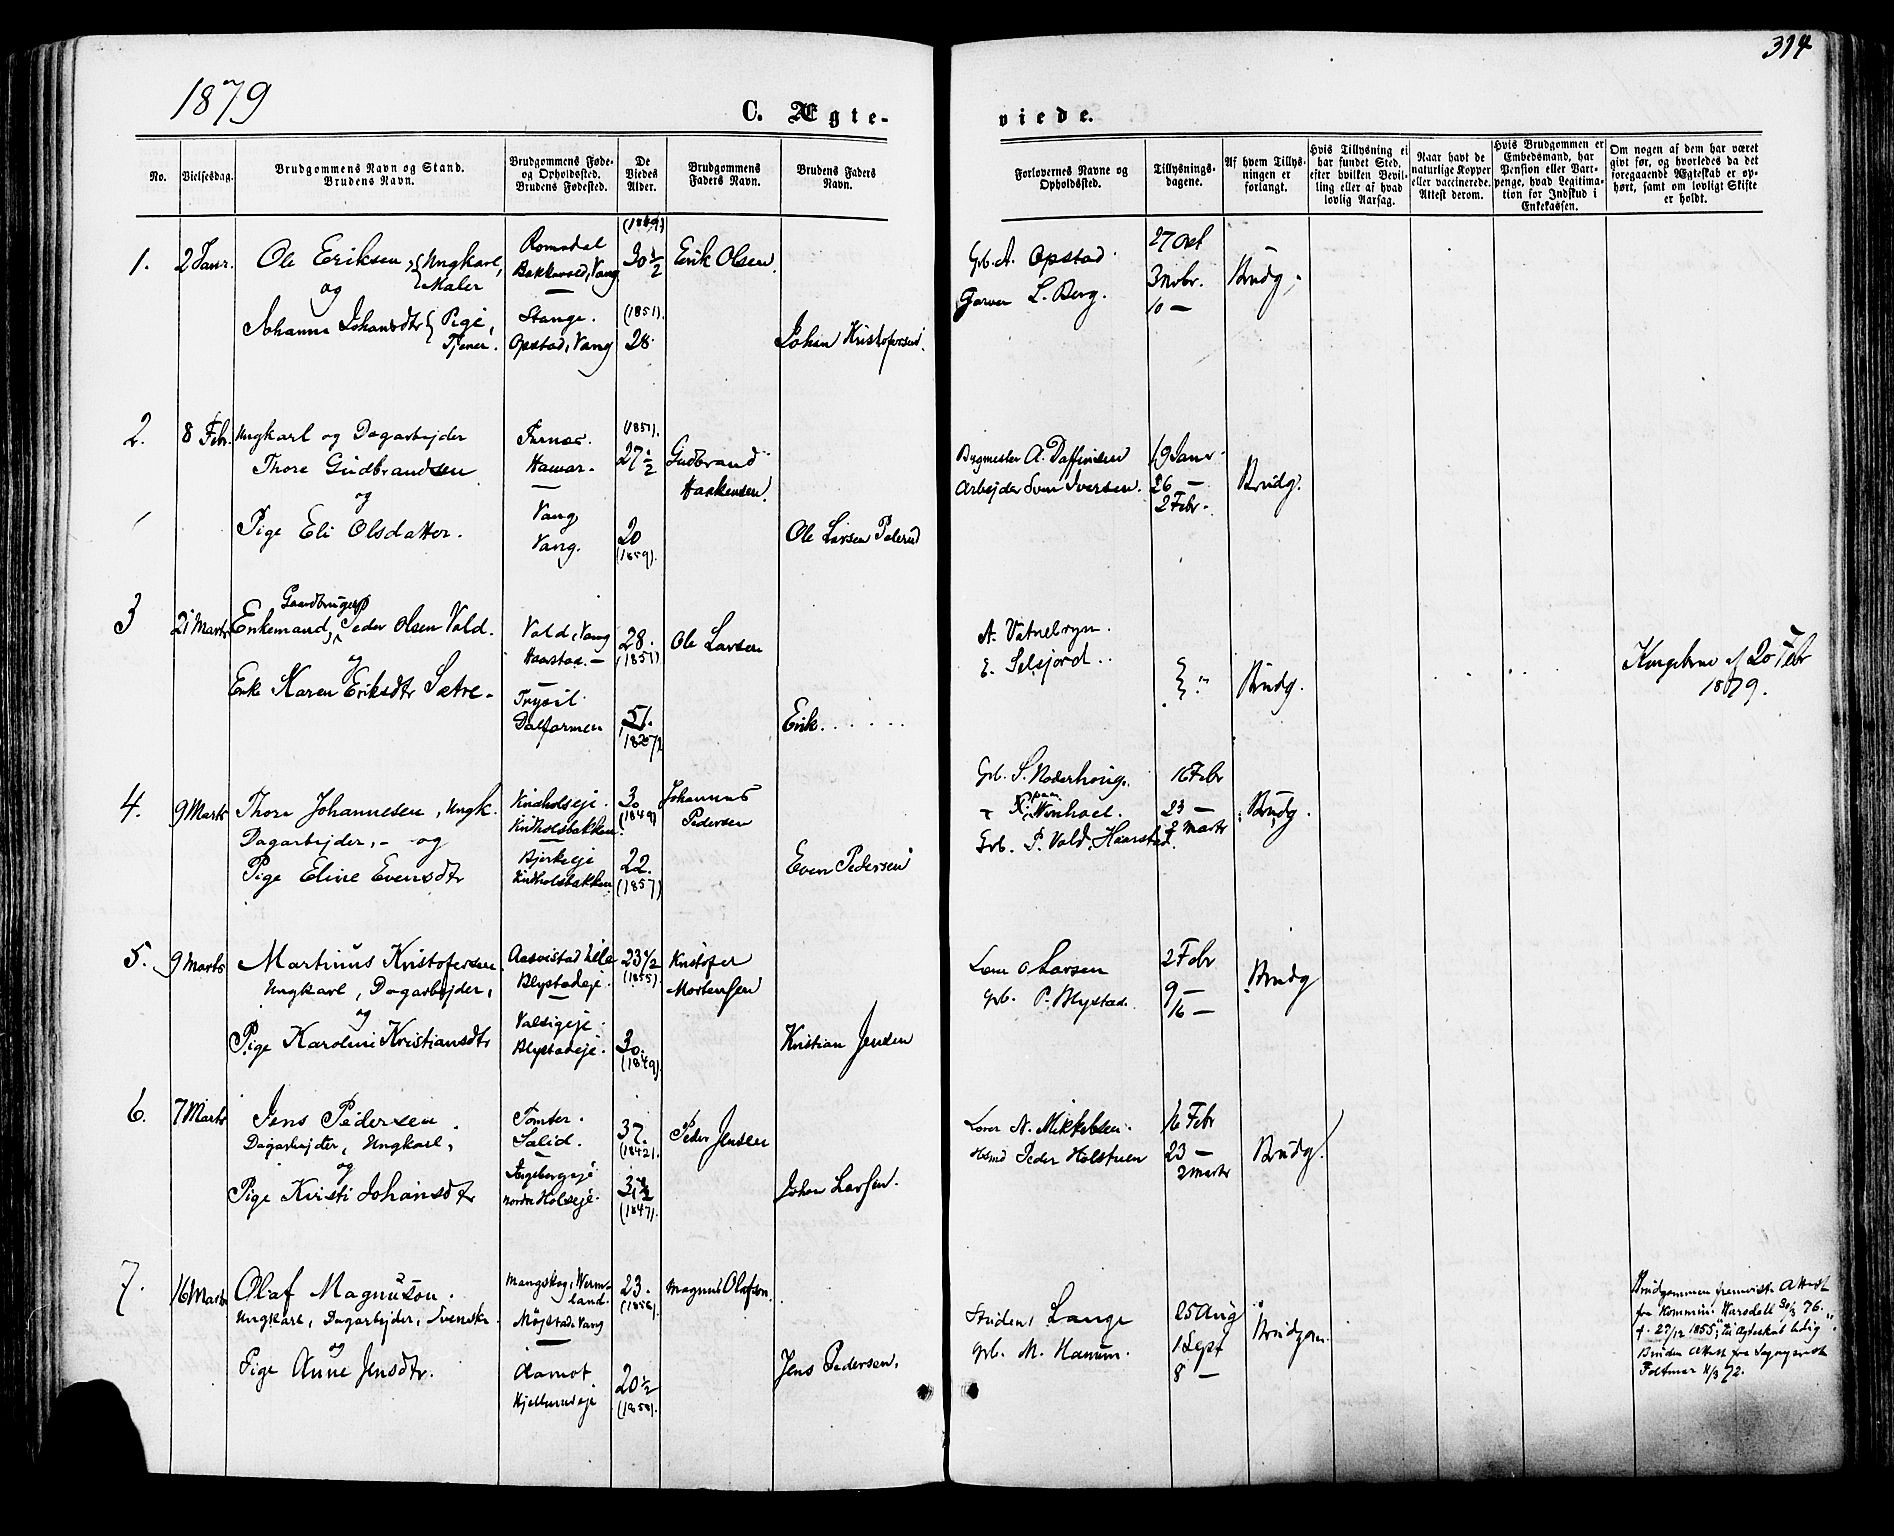 1879
C. Ægte-
viede.
314
No.
Vielsesdag.
Brudgommens Navn og Stand.
Brudens Navn.
Brudgommens Føde-
og Opholdssted.
Brudens Fødested.
De
Viedes
Alder.
Brudgommens
Faders Navn.
Brudens Faders
Navn.
Forlovernes Navne og
Opholdssted.
Tillysnings-
dagene.
Af hvem Tillys-
ningen er
forlangt.
Hvis Tillysning ei
har fundet Sted,
efter hvilken Bevil-
ling eller af hvad
lovlig Aarsag.
Naar havt de
naturlige Kopper
eller vaccinerede.
Attest derom.
Hvis Brudgommen er
Embedsmand, har
Pension eller Vart-
penge, hvad Legitima-
tion for Indskud i
Enkekassen.
Om nogen af dem har været
givt før, og hvorledes da det
foregaaende Ægteskab er op-
hørt, samt om lovligt Skifte
er holdt.
1. 2 Janr. Ole Eriksen, Ungkarl,
Maler
og
Johanne Johansdtr Pige,
Tjener.
Romsdal
Bekkevold, Vang
Stange.
Opstad, Vang
30 1/2
(1851).
28.
Erik Olsen.
Johan Kristofersen.
Grb. A. Opstad.
Garver L. Berg.
27 Oct
3 Novbr.
10 —
Brudg.
2. 8 Febr. Ungkarl og Dagarbejder
Thore Gudbrandsen
og
Pige Eli Olsdatter.
Furnæs.
Hamar.
Vang
Vang.
(1851).
27 1/2
20
(1859).
Gudbrand
Haakensen.
Ole Larsen
Bygmester A.
Arbejder Sven Iversen.
19 Janr
26 —
2 Febr.
Brudg.
3 21 Marts Gaardbruger
Enkemand, Peder Olsen Vold.
og
Enke Karen Eriksdtr Sætre.
Vold, Vang
Haarstad.
Trysil.
28.
(1851)
51.
Ole Larsen
Erik . . . . .
A. Vatnebryn.
E. Selsjord.
"
Brudg.
Kongebrev af 20 Febr
1879.
4. 9 Marts Thore Johannesen, Ungk.
Dagarbejder, - og
Pige Eline Evensdtr
Kvidholseje.
Kvidholsbakken.
Bjerkeeje
Kvidholsbakken
30
(1849)
22.
(1857)
Johannes
Pedersen
Even Pedersen
Grb. S.
Grb. P. Vold, Haarstad.
16 Febr
23 —
2 Marts
Brudg.
5. 9 Marts Martinus Kristofersen
Ungkarl, Dagarbejder,
og
Pige Karoline Kristiansdtr
Aasvistad lille
Blystadeje.
Blystadeje.
23 1/2
(1855).
30.
(1849).
Kristofer
Mortensen
Kristian Jensen
O Larsen
Grb. P. Blystad.
2 Febr
9 —
16 —
Brudg
6. 7 Marts Jens Pedersen.
Dagarbejder, Ungkarl,
og
Pige Kristi Johansdtr
Tomter.
Salid.
nordre Holseje.
37.
(1842).
31 1/2
(1847).
Peder Jensen
Johan Larsen.
Lærer N. Mikkelsen.
Hsmd Peder Holstuen
16 Febr
23 —
2 Marts
Brudg.
7. 16 Marts Olaf Magnuson.
Ungkarl, Dagarbejder, Svenske
og
Pige Anne Jensdtr.
Mangskog, Werm-
land.
Møjstad, Vang
Aamot
Hjellumeje
23.
20 1/2
(1858).
Magnus Olafson.
Jens Pedersen.
Student Lange
Grb. M. Hanum.
25 Aug
1 Sept
8 —
Brudgom.
Brudgommen fremviste Attest
fra Kommin.
f. 27/12 1855, til Ægteskab ledig
Bruden Attest fra Sognepræst
Feltmar 4/3 72.